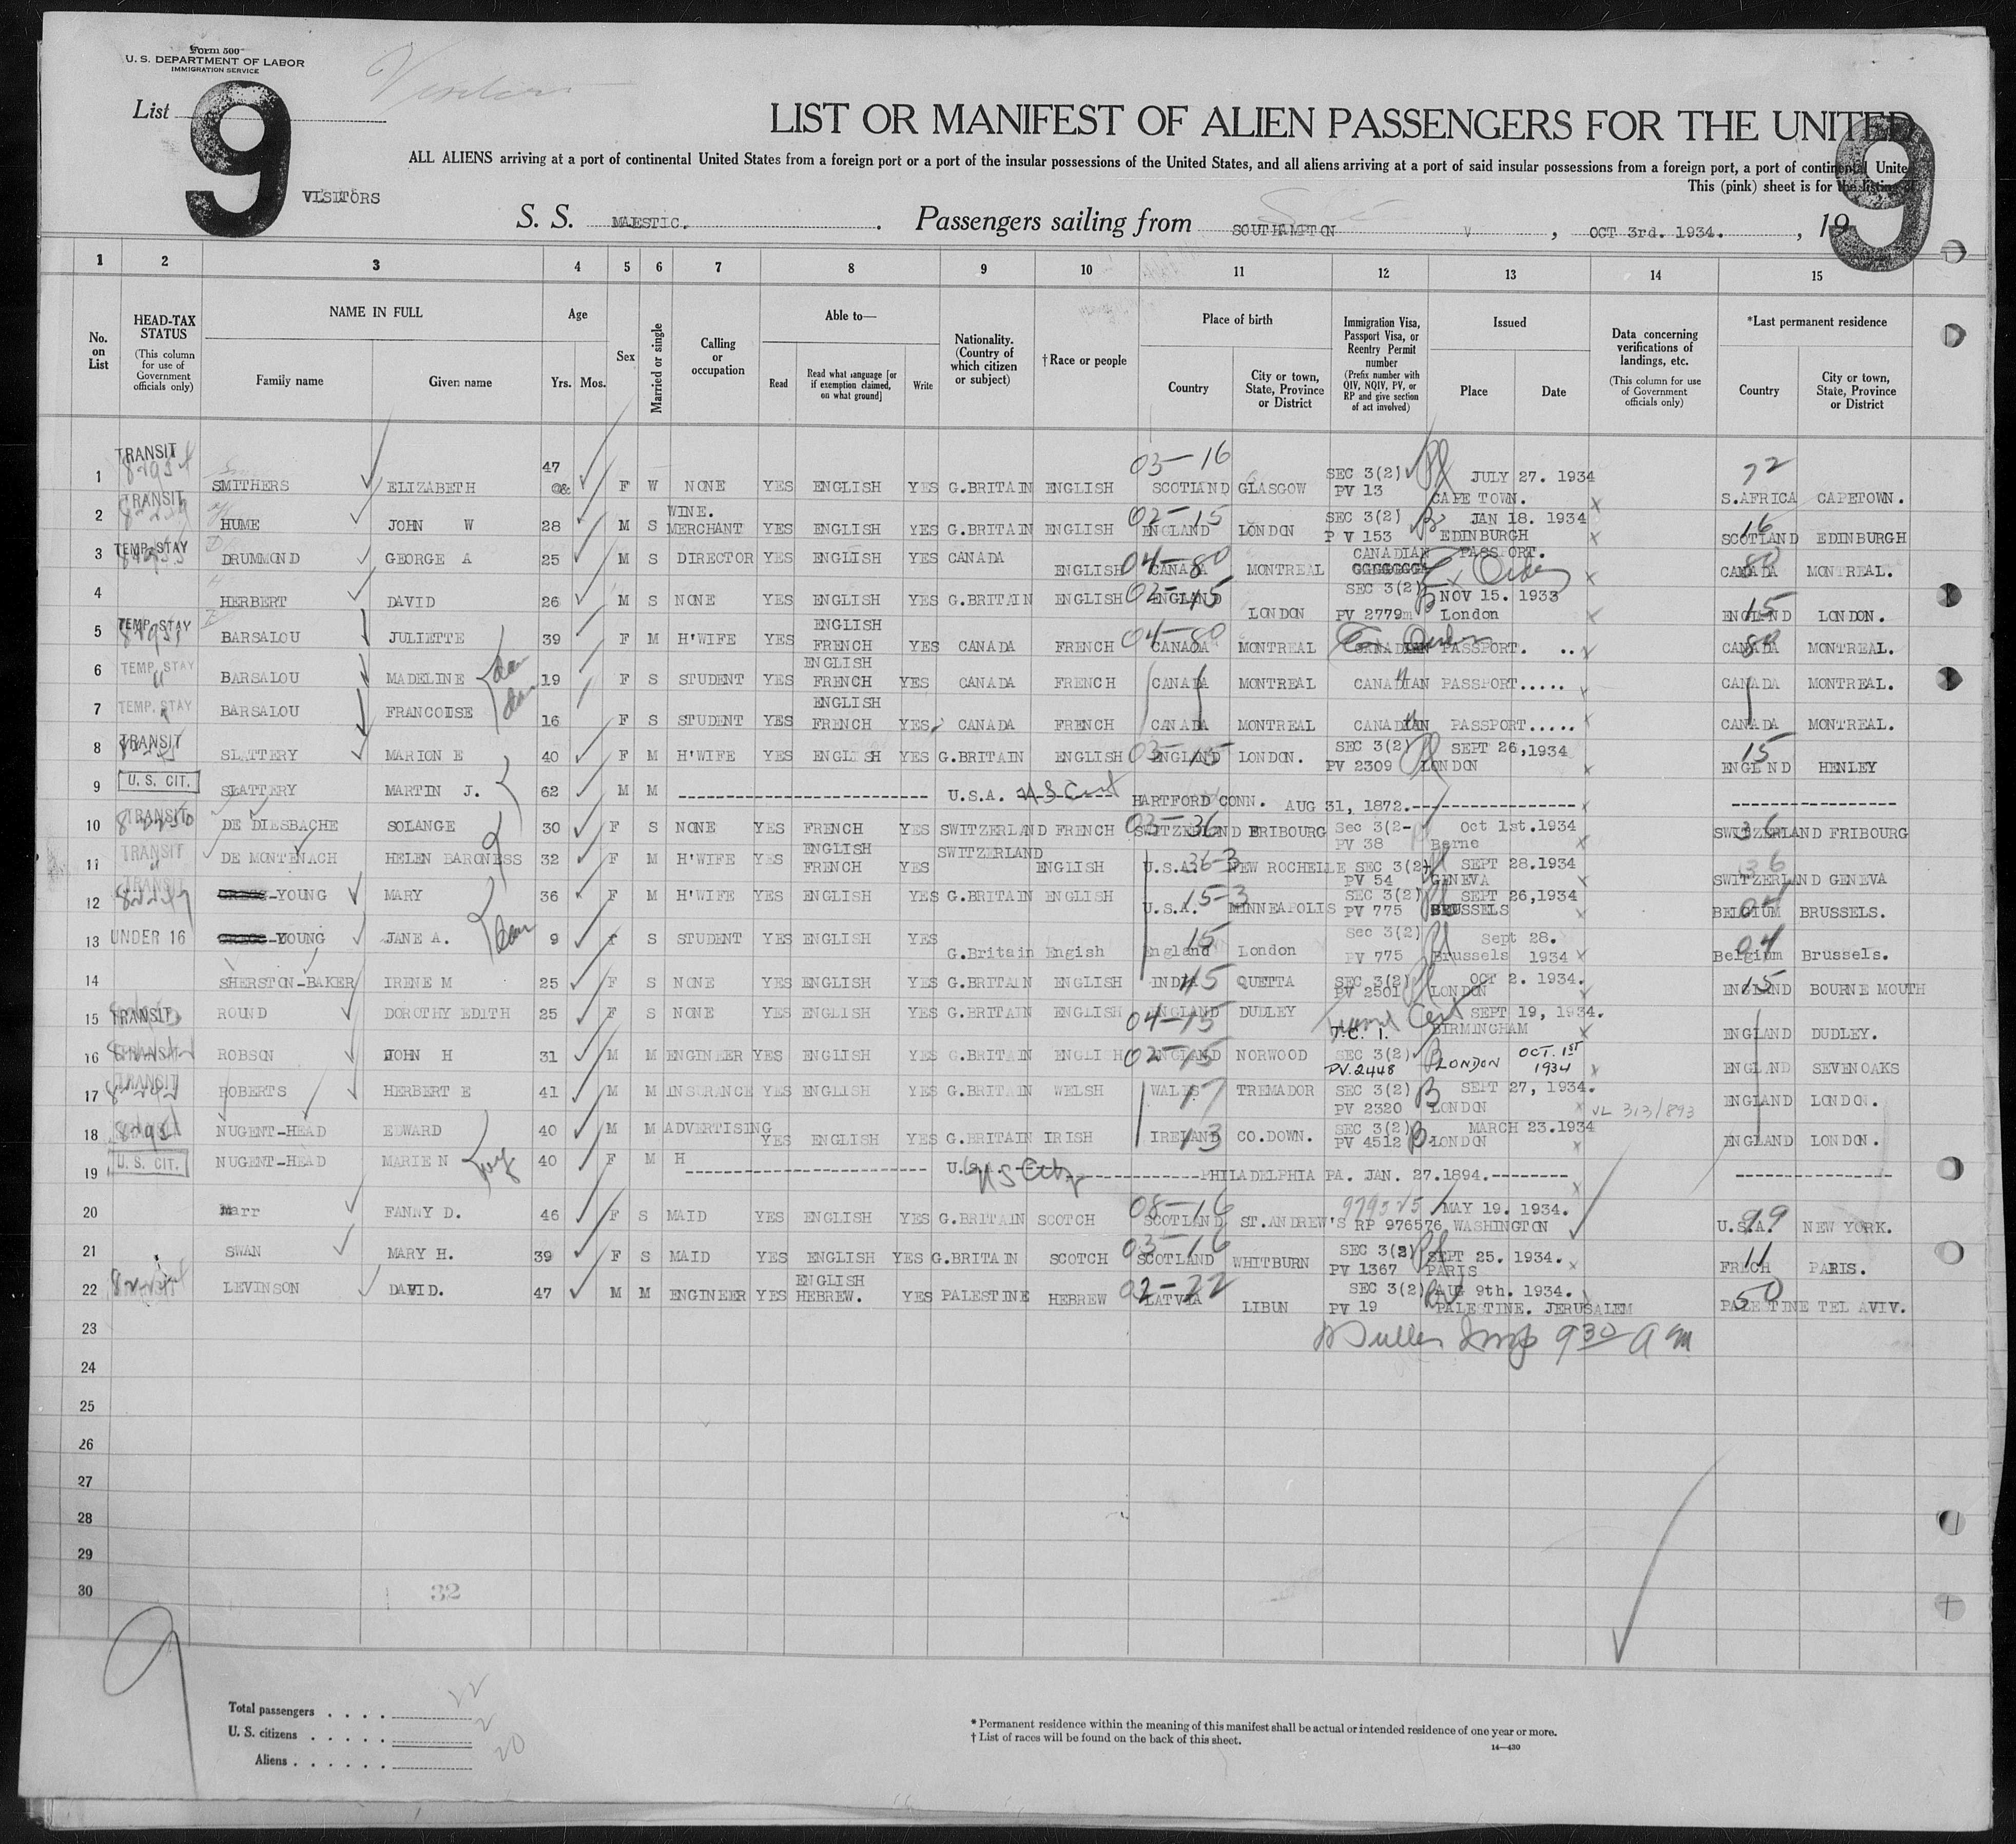 Form 500
U. S. DEPARTMENT OF LABOR
IMMIGRATION SERVICE
List
9
9
LIST OR MANIFEST OF ALIEN PASSENGERS FOR THE UNITED
ALL ALIENS arriving at a port of continental United States from a foreign port or a port of the insular possessions of the United States, and all aliens arriving at a port of said insular possessions from a foreign port, a port of continental Unite
This (pink) sheet is for the listing of
VISITORS
S. S. MAJESTIC. Passengers sailing from SOUTHAMPTON , OCT 3rd. 1934. , 19
1 2 3 4 5 6 7 8 9 10 11 12 13 14 15
No. on List
HEAD-TAX STATUS (This column for use of Government officials only)
NAME IN FULL
Family name Given name
Age
Yrs. Mos.
Sex
Married or single
Calling or occupation
Able to—
Read
Read what language [or if exemption claimed, on what ground]
Write
Nationality. (Country of which citizen or subject)
†Race or people
Place of birth
Country
City or town, State, Province or District
Immigration Visa, Passport Visa, or Reentry Permit number (Prefix number with QIV, NQIV, PV, or RP and give section of act involved)
Issued
Place Date
Data concerning verifications of landings, etc. (This column for use of Government officials only)
*Last permanent residence
Country
City or town, State, Province or District
1 TRANSIT SMITHERS ELIZABETH 47 F W NONE YES ENGLISH YES G.BRITAIN ENGLISH 03-16 SCOTLAND GLASGOW SEC 3(2) PV 13 JULY 27. 1934 CAPE TOWN. 72 S.AFRICA CAPETOWN.
2 TRANSIT HUME JOHN W 28 M S WINE. MERCHANT YES ENGLISH YES G.BRITAIN ENGLISH 02-15 ENGLAND LONDON SEC 3(2) P V 153 JAN 18. 1934 EDINBURGH 16 SCOTLAND EDINBURGH
3 TEMP. STAY DRUMMOND GEORGE A 25 M S DIRECTOR YES ENGLISH YES CANADA ENGLISH 04-80 CANADA MONTREAL CANADIAN PASSPORT. 80 CANADA MONTREAL.
4 HERBERT DAVID 26 M S NONE YES ENGLISH YES G.BRITAIN ENGLISH 02-15 ENGLAND LONDON SEC 3(2) PV 2779m NOV 15. 1933 London 15 ENGLAND LONDON.
5 TEMP. STAY BARSALOU JULIETTE 39 F M H'WIFE YES ENGLISH FRENCH YES CANADA FRENCH 04-80 CANADA MONTREAL CANADIAN PASSPORT. .. 80 CANADA MONTREAL.
6 TEMP. STAY BARSALOU MADELINE dau 19 F S STUDENT YES ENGLISH FRENCH YES CANADA FRENCH CANADA MONTREAL CANADIAN PASSPORT..... CANADA MONTREAL.
7 TEMP. STAY BARSALOU FRANCOISE dau 16 F S STUDENT YES ENGLISH FRENCH YES CANADA FRENCH CANADA MONTREAL CANADIAN PASSPORT..... CANADA MONTREAL.
8 TRANSIT SLATTERY MARION E 40 F M H'WIFE YES ENGLISH YES G.BRITAIN ENGLISH 03-15 ENGLAND LONDON. SEC 3(2) PV 2309 SEPT 26,1934 LONDON 15 ENGLND HENLEY
9 U. S. CIT. SLATTERY MARTIN J. 62 M M U.S.A. U S Cit HARTFORD CONN. AUG 31, 1872.
10 TRANSIT DE DIESBACHE SOLANGE 30 F S NONE YES FRENCH YES SWITZERLAND FRENCH 03-36 SWITZERLAND FRIBOURG Sec 3(2- PV 38 Oct 1st.1934 Berne 36 SWITZERLAND FRIBOURG
11 TRANSIT DE MONTENACH HELEN BARONESS 32 F M H'WIFE YES ENGLISH FRENCH YES SWITZERLAND ENGLISH U.S.A. 36-3 NEW ROCHELLE SEC 3(2) PV 54 SEPT 28.1934 GENEVA 36 SWITZERLAND GENEVA
12 TRANSIT -YOUNG MARY 36 F M H'WIFE YES ENGLISH YES G.BRITAIN ENGLISH 15-3 U.S.A. MINNEAPOLIS SEC 3(2) PV 775 SEPT 26,1934 BRUSSELS 04 BELGIUM BRUSSELS.
13 UNDER 16 -YOUNG JANE A. dau 9 F S STUDENT YES ENGLISH YES G.Britain Engish 15 England London Sec 3(2) PV 775 Sept 28. Brussels 1934 04 Belgium Brussels.
14 SHERSTON-BAKER IRENE M 25 F S NONE YES ENGLISH YES G.BRITAIN ENGLISH 15 INDIA QUETTA SEC 3(2) PV 2501 OCT 2. 1934. LONDON 15 ENGLAND BOURNE MOUTH
15 TRANSIT ROUND DOROTHY EDITH 25 F S NONE YES ENGLISH YES G.BRITAIN ENGLISH 04-15 ENGLAND DUDLEY T.C. 1. SEPT 19, 1934. BIRMINGHAM ENGLAND DUDLEY.
16 TRANSIT ROBSON JOHN H 31 M M ENGINEER YES ENGLISH YES G.BRITAIN ENGLI H 02-15 ENGLAND NORWOOD SEC 3(2) PV.2448 LONDON OCT. 1ST 1934 ENGLAND SEVENOAKS
17 TRANSIT ROBERTS HERBERT E 41 M M INSURANCE YES ENGLISH YES G.BRITAIN WELSH 17 WALES TREMADOR SEC 3(2) PV 2320 SEPT 27, 1934. LONDON VL 313/893 ENGLAND LONDON.
18 NUGENT-HEAD EDWARD 40 M M ADVERTISING YES ENGLISH YES G.BRITAIN IRISH 13 IRELAND CO.DOWN. SEC 3(2) PV 4512 MARCH 23.1934 LONDON ENGLAND LONDON.
19 U. S. CIT. NUGENT-HEAD MARIE N wf 40 F M H U. PHILADELPHIA PA. JAN. 27.1894.
20 Marr FANNY D. 46 F S MAID YES ENGLISH YES G.BRITAIN SCOTCH 08-16 SCOTLAND ST.ANDREW'S RP 976576 MAY 19. 1934. WASHINGTON 99 U.S.A. NEW YORK.
21 SWAN MARY H. 39 F S MAID YES ENGLISH YES G.BRITAIN SCOTCH 03-16 SCOTLAND WHITBURN SEC 3(2) PV 1367 SEPT 25. 1934. PARIS 11 FRECH PARIS.
22 LEVINSON DAVID. 47 M M ENGINEER YES ENGLISH HEBREW. YES PALESTINE HEBREW 02-22 LATVIA LIBUN SEC 3(2) PV 19 AUG 9th. 1934. PALESTINE. JERUSALEM 50 PALESTINE TEL AVIV.
23 Insp 9 30 A M
24
25
26
27
28
29
30
32
9
Total passengers . . . . 22
U. S. citizens . . . . . 2
Aliens . . . . . . 20
* Permanent residence within the meaning of this manifest shall be actual or intended residence of one year or more.
† List of races will be found on the back of this sheet.
14—430